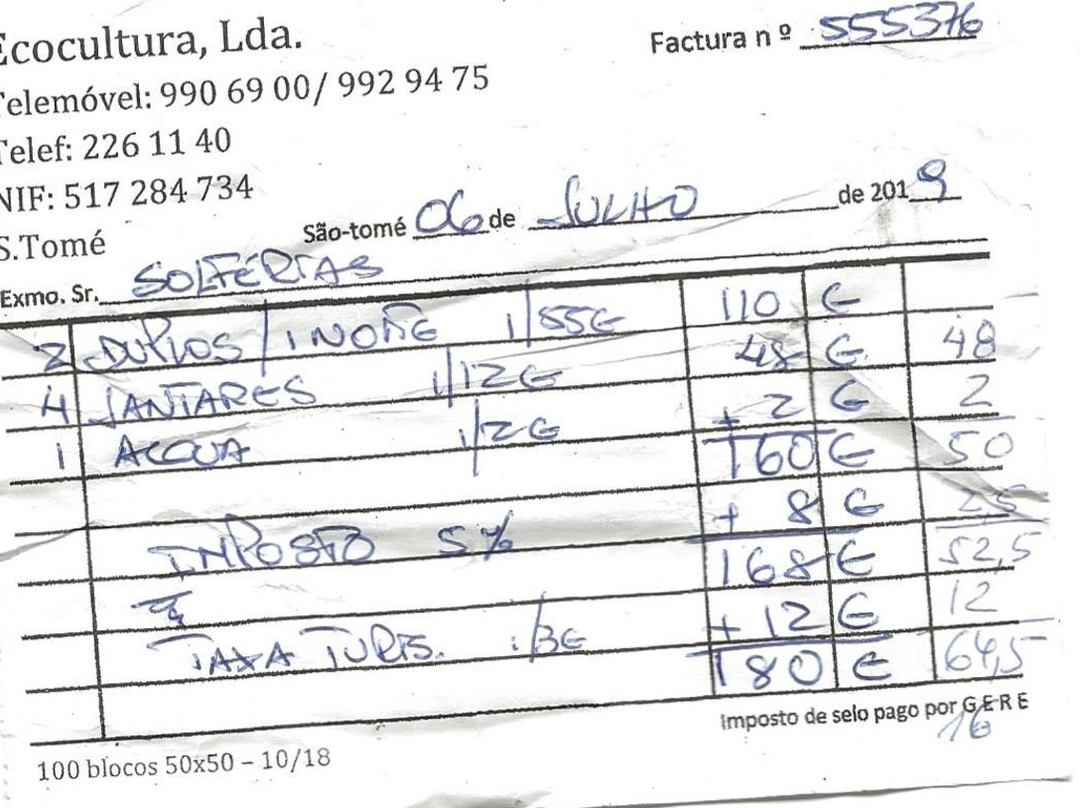 Ecocultura, Lda.
Factura nº 555376
Telemóvel: 990 69 00/ 992 94 75
Telef: 226 11 40
NIF: 517 284 734
S.Tomé
São-tomé 06 de JULHO de 2019
Exmo. Sr. SOLFÉRIAS
2 DUPLOS / 1 NOITE 1/55€ 110 €
4 JANTARES 1/12€ 48 € 48
1 ACQUA 1/2€ + 2 € 2
160 € 50
IMPOSTO 5% + 8 € 2,5
168 € 52,5
TAXA TURIS. 1/3€ + 12 € 12
180 € 64,5
Imposto de selo pago por G E R E
16
100 blocos 50x50 – 10/18